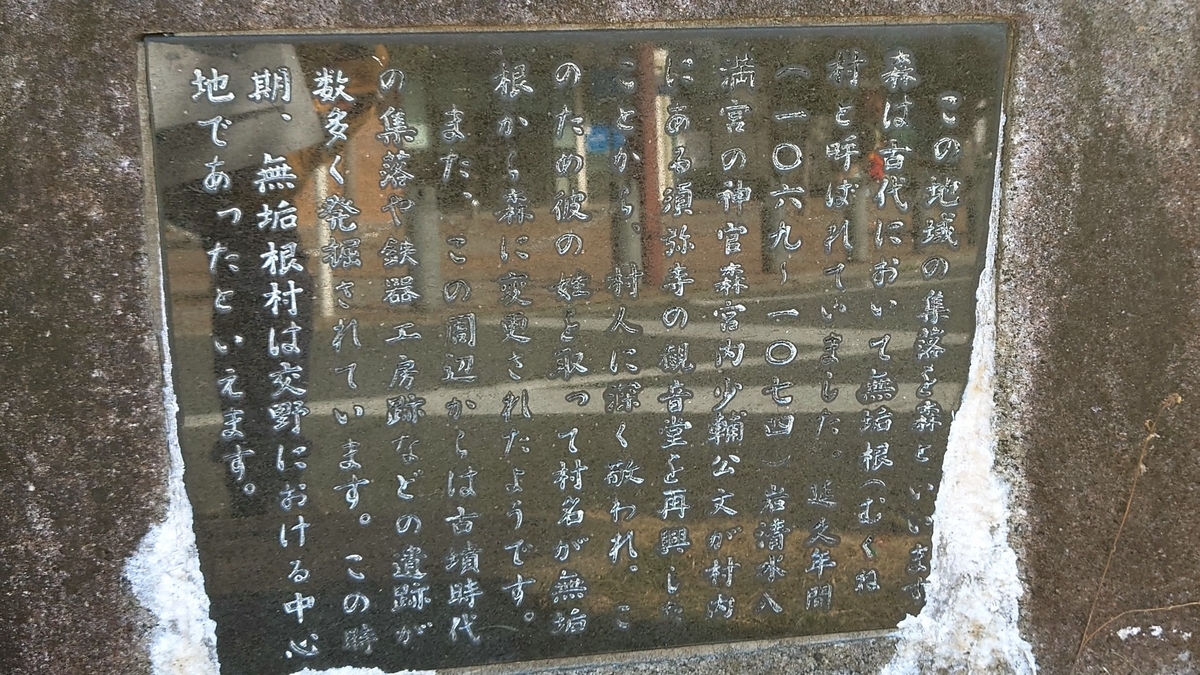 この地域の集落を森といいます
森は古代において無垢根（むくね
村と呼ばれていました。延久年間
（一〇六九～一〇七四）岩清水八
満宮の神官森宮内少輔公文が村内
にある須弥寺の観音堂を再興した
ことから、村人に深く敬われ、こ
のため彼の姓を取って村名が無垢
根から森に変更されたようです。
また、この周辺からは古墳時代
の集落や鉄器工房跡などの遺跡が
数多く発掘されています。この時
期、無垢根村は交野における中心
地であったといえます。